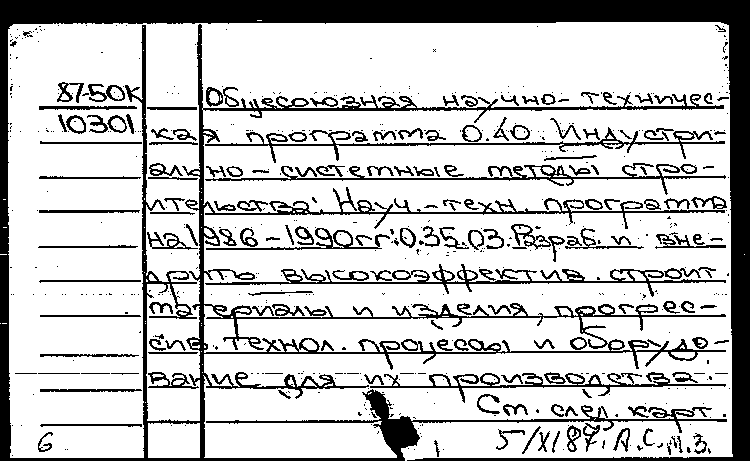 87-50К Общесоюзная научно-техничес-
10301 кая программа 0.40. Индустри-
ально-системные методы стро-
ительства: Науч.-техн. программа
на 1986-1990гг: 0.35.03. Разраб. и вне-
дрить высокоэффектив. строит.
материалы и изделия, прогрес-
сив. технол. процессы и оборудо-
вание для их производства.
Ст. след. карт.
6 5/XI87. А.С. М.З.